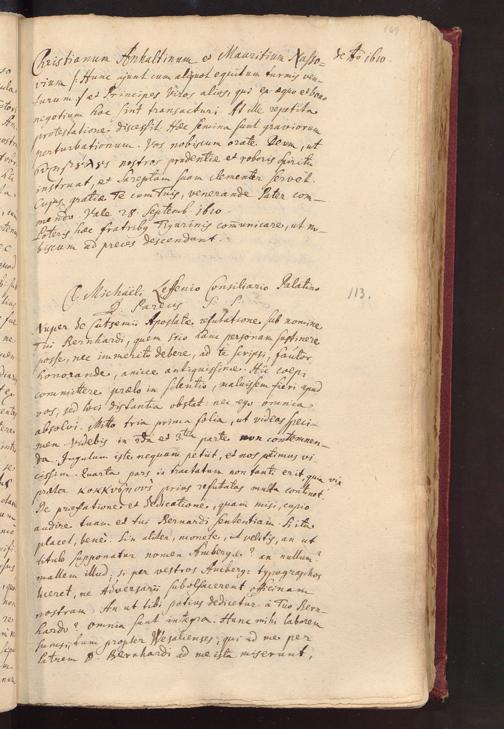 169
Christianum Anhaltinum et Mauritium Nasso-
de Aō 1610.
vium. Hunc ajunt cum aliquot equitum turmis ven-
turum, et Principes Viros alios, qui ex aequo et bono
negotium hoc sint transacturi. At ille repetita
protestatione discessit. Haec semina sunt graviorum
perturbationum. Vos nobiscum orate Deum, ut
nostros prudentiae et roboris spiritu
instruat, et Sareptam suam clementer servet.
Cujus gratiae Te cum Tuis, venerande Pater com-
mendo. Vale 28 Septemb. 1610.
Poteris haec fratribus Tigurinis communicare, ut no-
biscum ad preces descendant.
Cl. Michaëli Consiliario Palatino
D. Pareus S. P.
113.
Nuper de Apostatae refutatione, sub nomine
Tui Bernhardi, quem scio hanc personam sustinere
posse, nec immerito debere, ad te scripsi, fautor
honorande, amice antiquissime. Hic coepi
committere praelo in silentio, maluissem fieri apud
vos, sed loci distantia obstat: nec ego omnia
absolvi. Mitto tria prima folia, ut videas speci-
men. Videbis in 2da et 3tia parte non contemnen-
da. Jugulum iste nequam petiit, et nos petimus vi-
cissim. Quarta pars in tractatum non tanti erit, quia vix
praeter prius refutatos multa continet.
De praefatione et dedicatione, quam misi, cupio
audire tuam et tui Bernardi sententiam. Si ita
placet, bene: Sin aliter, monete, ut velitis, an ut
titulo supponatur nomen Ambergae? an nullum?
mallem illud, si per vestros Amberg: typographos
liceret, ne Adversarii subolfacerent officinam
nostram. An ut tibi potius dedicetur à Tuo Bern-
hardo? omnia sunt integra. Hunc mihi laborem
sumsi, tum propter Wesalienses, qui ad me per
fratrem D. Bernhardi ad me ista miserunt,